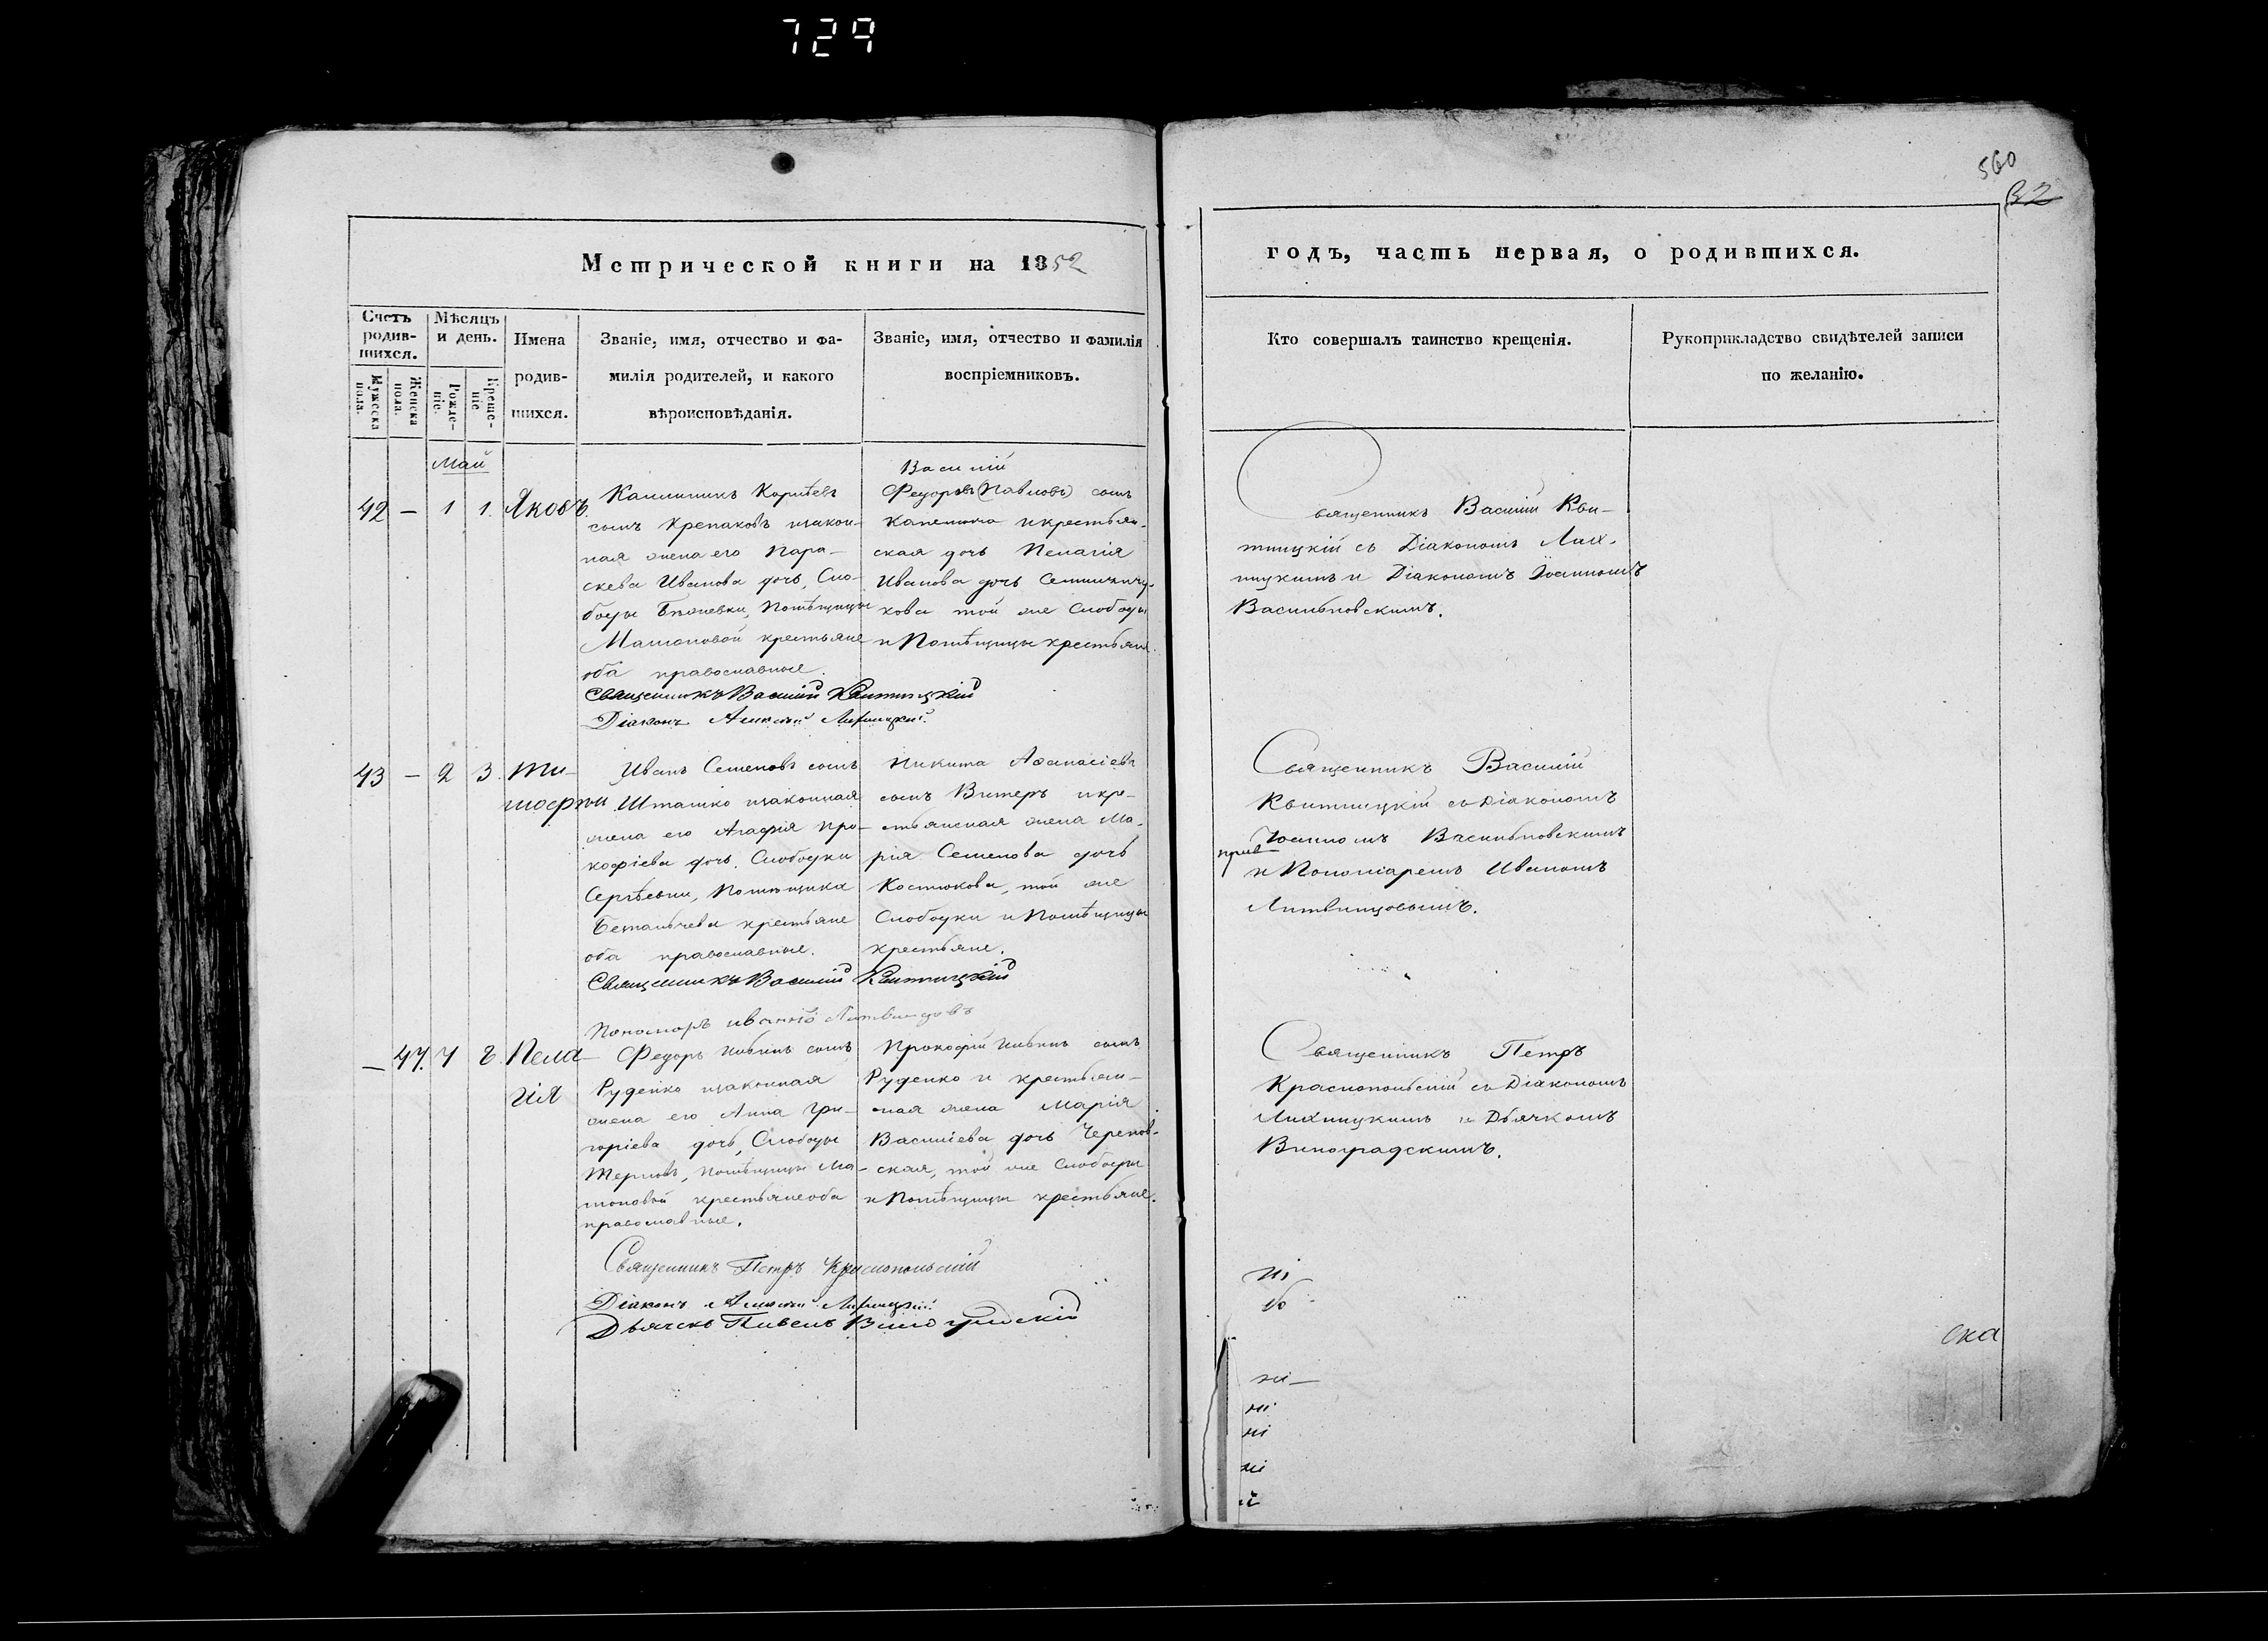 729
560
32
Метрической книги на 1852
годъ, часть первая, о родившихся.
Счетъ родив-шихся.
Мѣсяцъ и день.
Имена родив-шихся.
Званіе, имя, отчество и фа-
милія родителей, и какого
вѣроисповѣданія.
Званіе, имя, отчество и фамилія
воспріемниковъ.
Кто совершалъ таинство крещенія.
Рукоприкладство свидѣтелей записи
по желанію.
Мужеска пола.
Женска пола.
Рожде-ніе.
Креще-ніе
Май
42 — 1 1. Яковъ.
Каллиникъ Корнѣевъ
сынъ Крепаковъ изакон-
ная жена его Пара-
скева Иванова дочь, Сло-
боды Помѣщицы
крестьяне
оба православные.
Священникъ Василій Квитницкій
Діаконъ Алексѣй
Василій
Федоровъ (Павловъ) сынъ
икрестьян-
ская дочь Пелагія
Иванова дочь
кова той же Слободы
и Помѣщицы крестьяне.
Священникъ Василій Кви-
тницкій съ Діакономъ Лих-
ницкимъ и Діакономъ Іоанномъ
Васильковскимъ.
43 — 2 3. Ти-
мофѣй
Иванъ Семеновъ сынъ
Шташко изаконная
жена его Агафія Про-
кофіева дочь, Слободки
Сергѣевки, Помѣщика
крестьяне
оба православные.
Священникъ Василій Квитницкій
Пономарь Иванъ Литвинцовъ
Никита Аѳанасіевъ
сынъ Витеръ икре-
стьянская жена Ма-
рія Семенова дочь
Костюкова, той же
Слободки и Помѣщицы
крестьяне.
Священникъ Василій
Квитницкій съ Діакономъ
Іоанномъ Васильковскимъ
и Пономаремъ Иваномъ
Литвинцовымъ.
— 47. 7 8. Пела-
гія
Федоръ Ильинъ сынъ
Руденко изаконная
жена его Анна Гри-
горіева дочь, Слободы
Терновъ, Помѣщицы Ма-
крестьяне оба
православные.
Священникъ Петръ Краснопольскій
Діаконъ Алексѣй
Дьячекъ Павелъ Виноградскій
Прокофій Ильинъ сынъ
Руденко и крестьян-
ская жена Марія
Василіева дочь Черняв-
ская, той же Слободы
и Помѣщицы крестьяне.
Священникъ Петръ
Краснопольскій съ Діакономъ
Лихницкимъ и Дьячкомъ
Виноградскимъ.
ска